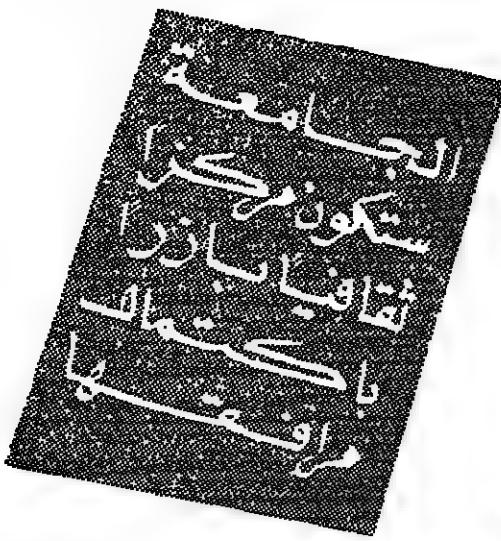 الجامعة
ستكون مركزاً
ثقافياً بارزاً
باكتمال
مرافقها